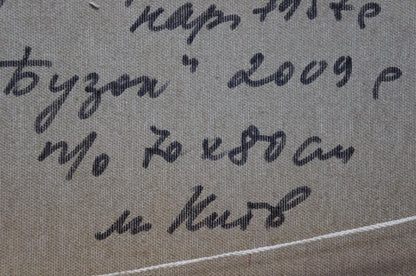 нар. 1957р
Бузок" 2009р
п/о 70х80см
м. Київ